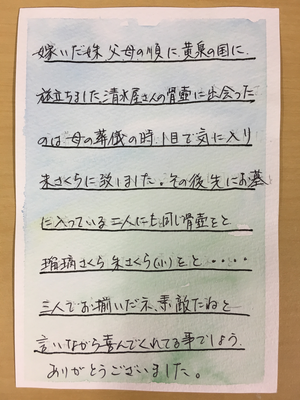 嫁いだ妹 父母の順に、黄泉の国に、
旅立ちました、清水屋さんの骨壺に出会った
のは母の葬儀の時、1目で気に入り
朱さくらに致しました。その後先にお墓
に入っている二人にも同じ骨壺をと
瑠璃さくら 朱さくら(小)をと・・・・
三人でお揃いだネ、素敵だねと
言いながら喜んでくれてる事でしょう、
ありがとうございました。